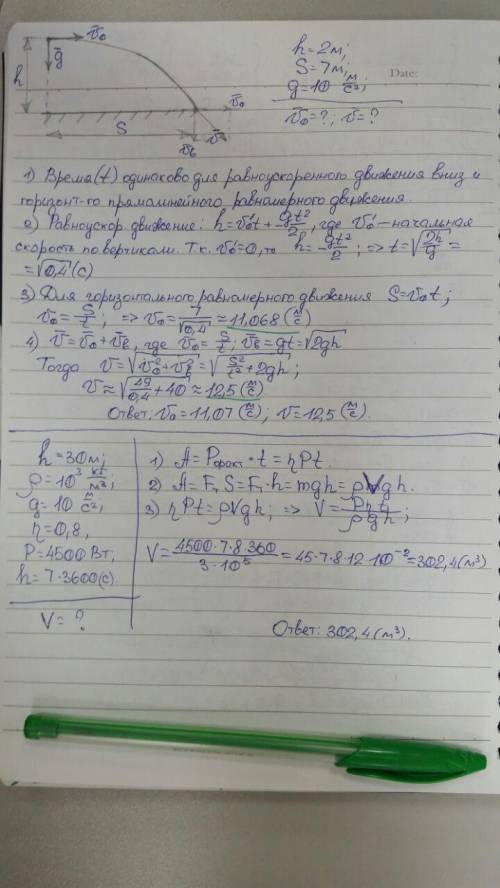 h
g̅
v̅₀
S
v̅₀
v̅в
v̅
h = 2м;
S = 7м;
Date:
g = 10 м/с²;
v̅₀ = ?; v̅ = ?
1) Время (t) одинаково для равноускоренного движения вниз и
горизонт-го прямолинейного равномерного движения.
2) Равноускор. движение: h = v₀'t + gt²/2, где v₀' – начальная
скорость по вертикали. Т.к. v₀' = 0, то h = gt²/2; => t = √(2h/g) =
= √0,4 (с)
3) Для горизонтального равномерного движения S = v₀t;
v₀ = S/t; => v₀ = 7/√0,4 ≈ 11,068 (м/с)
4) v̅ = v̅₀ + v̅в, где v₀ = S/t; vв = gt = √2gh
Тогда v = √(v₀² + vв²) = √(S²/t² + 2gh);
v ≈ √(49/0,4 + 40) ≈ 12,5 (м/с)
Ответ: v₀ = 11,07 (м/с); v = 12,5 (м/с).
h = 30м;
ρ = 10³ кг/м³;
g = 10 м/с²;
η = 0,8,
P = 4500 Вт;
h = 7·3600 (с).
V = ?
1) A = Pфакт · t = ηPt.
2) A = Fт S = Fт·h = mgh = ρVgh.
3) ηPt = ρVgh; => V = Pηt/ρgh;
V = 4500·7·8·360/3·10⁵ = 45·7·8·12·10⁻² = 302,4 (м³)
Ответ: 302,4 (м³).